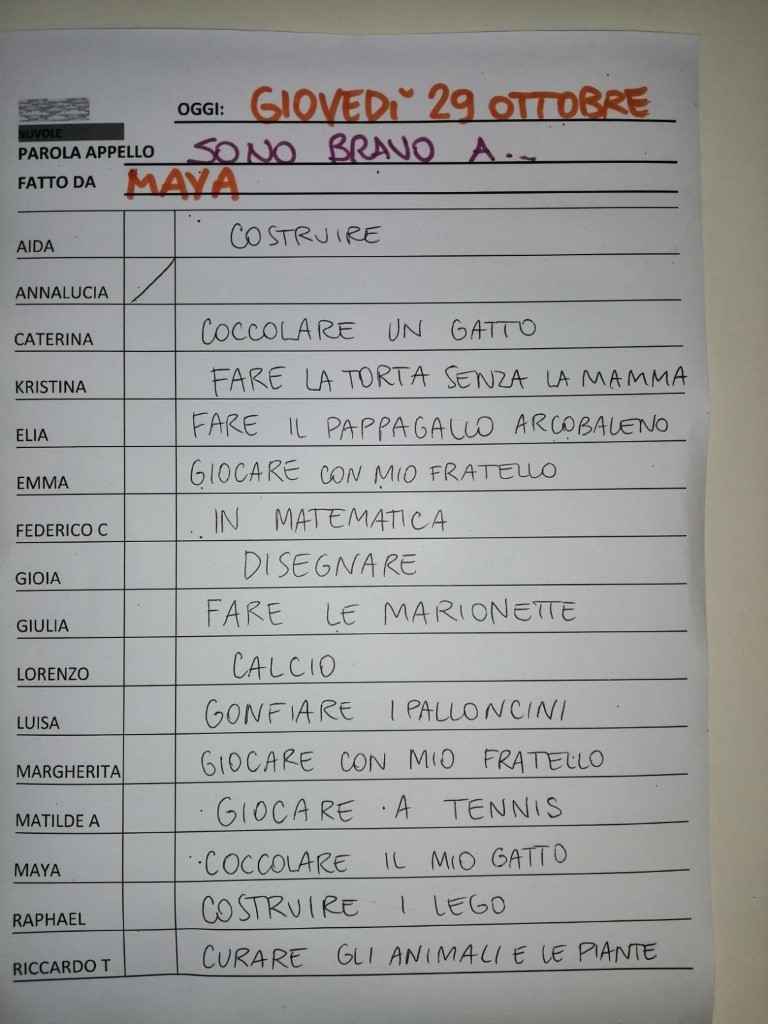 OGGI: GIOVEDÌ 29 OTTOBRE
NUVOLE
PAROLA APPELLO SONO BRAVO A...
FATTO DA MAYA
AIDA COSTRUIRE
ANNALUCIA
CATERINA COCCOLARE UN GATTO
KRISTINA FARE LA TORTA SENZA LA MAMMA
ELIA FARE IL PAPPAGALLO ARCOBALENO
EMMA GIOCARE CON MIO FRATELLO
FEDERICO C IN MATEMATICA
GIOIA DISEGNARE
GIULIA FARE LE MARIONETTE
LORENZO CALCIO
LUISA GONFIARE I PALLONCINI
MARGHERITA GIOCARE CON MIO FRATELLO
MATILDE A GIOCARE A TENNIS
MAYA COCCOLARE IL MIO GATTO
RAPHAEL COSTRUIRE I LEGO
RICCARDO T CURARE GLI ANIMALI E LE PIANTE